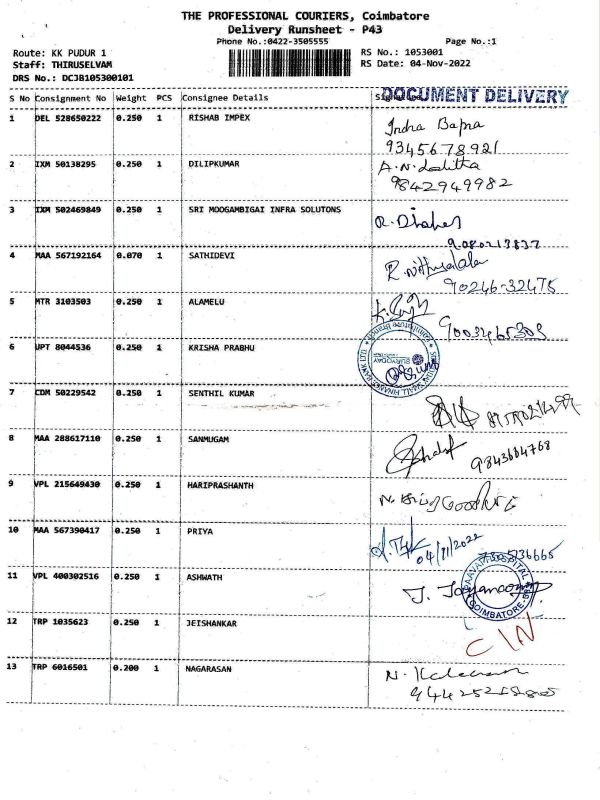 THE PROFESSIONAL COURIERS, Coimbatore
Delivery Runsheet - P43
Phone No.:0422-3505555 Page No.:1
Route: KK PUDUR 1 RS No.: 1053001
Staff: THIRUSELVAM RS Date: 04-Nov-2022
DRS No.: DCJB105300101
DOCUMENT DELIVERY
S No Consignment No Weight PCS Consignee Details
1 DEL 528650222 0.250 1 RISHAB IMPEX
Indra Bapna
9345678921
2 IXM 50138295 0.250 1 DILIPKUMAR
A.N. Lalitha
9842949982
3 IXM 502469849 0.250 1 SRI MOOGAMBIGAI INFRA SOLUTONS
4 MAA 567192164 0.070 1 SATHIDEVI
90246-32475
5 MTR 3103503 0.250 1 ALAMELU
6 UPT 8044536 0.250 1 KRISHA PRABHU
7 CDM 50229542 0.250 1 SENTHIL KUMAR
8 MAA 288617110 0.250 1 SANMUGAM
9843664768
9 VPL 215649430 0.250 1 HARIPRASHANTH
10 MAA 567390417 0.250 1 PRIYA
04/11/2022
11 VPL 400302516 0.250 1 ASHWATH
COIMBATORE
12 TRP 1035623 0.250 1 JEISHANKAR
CIN
13 TRP 6016501 0.200 1 NAGARASAN